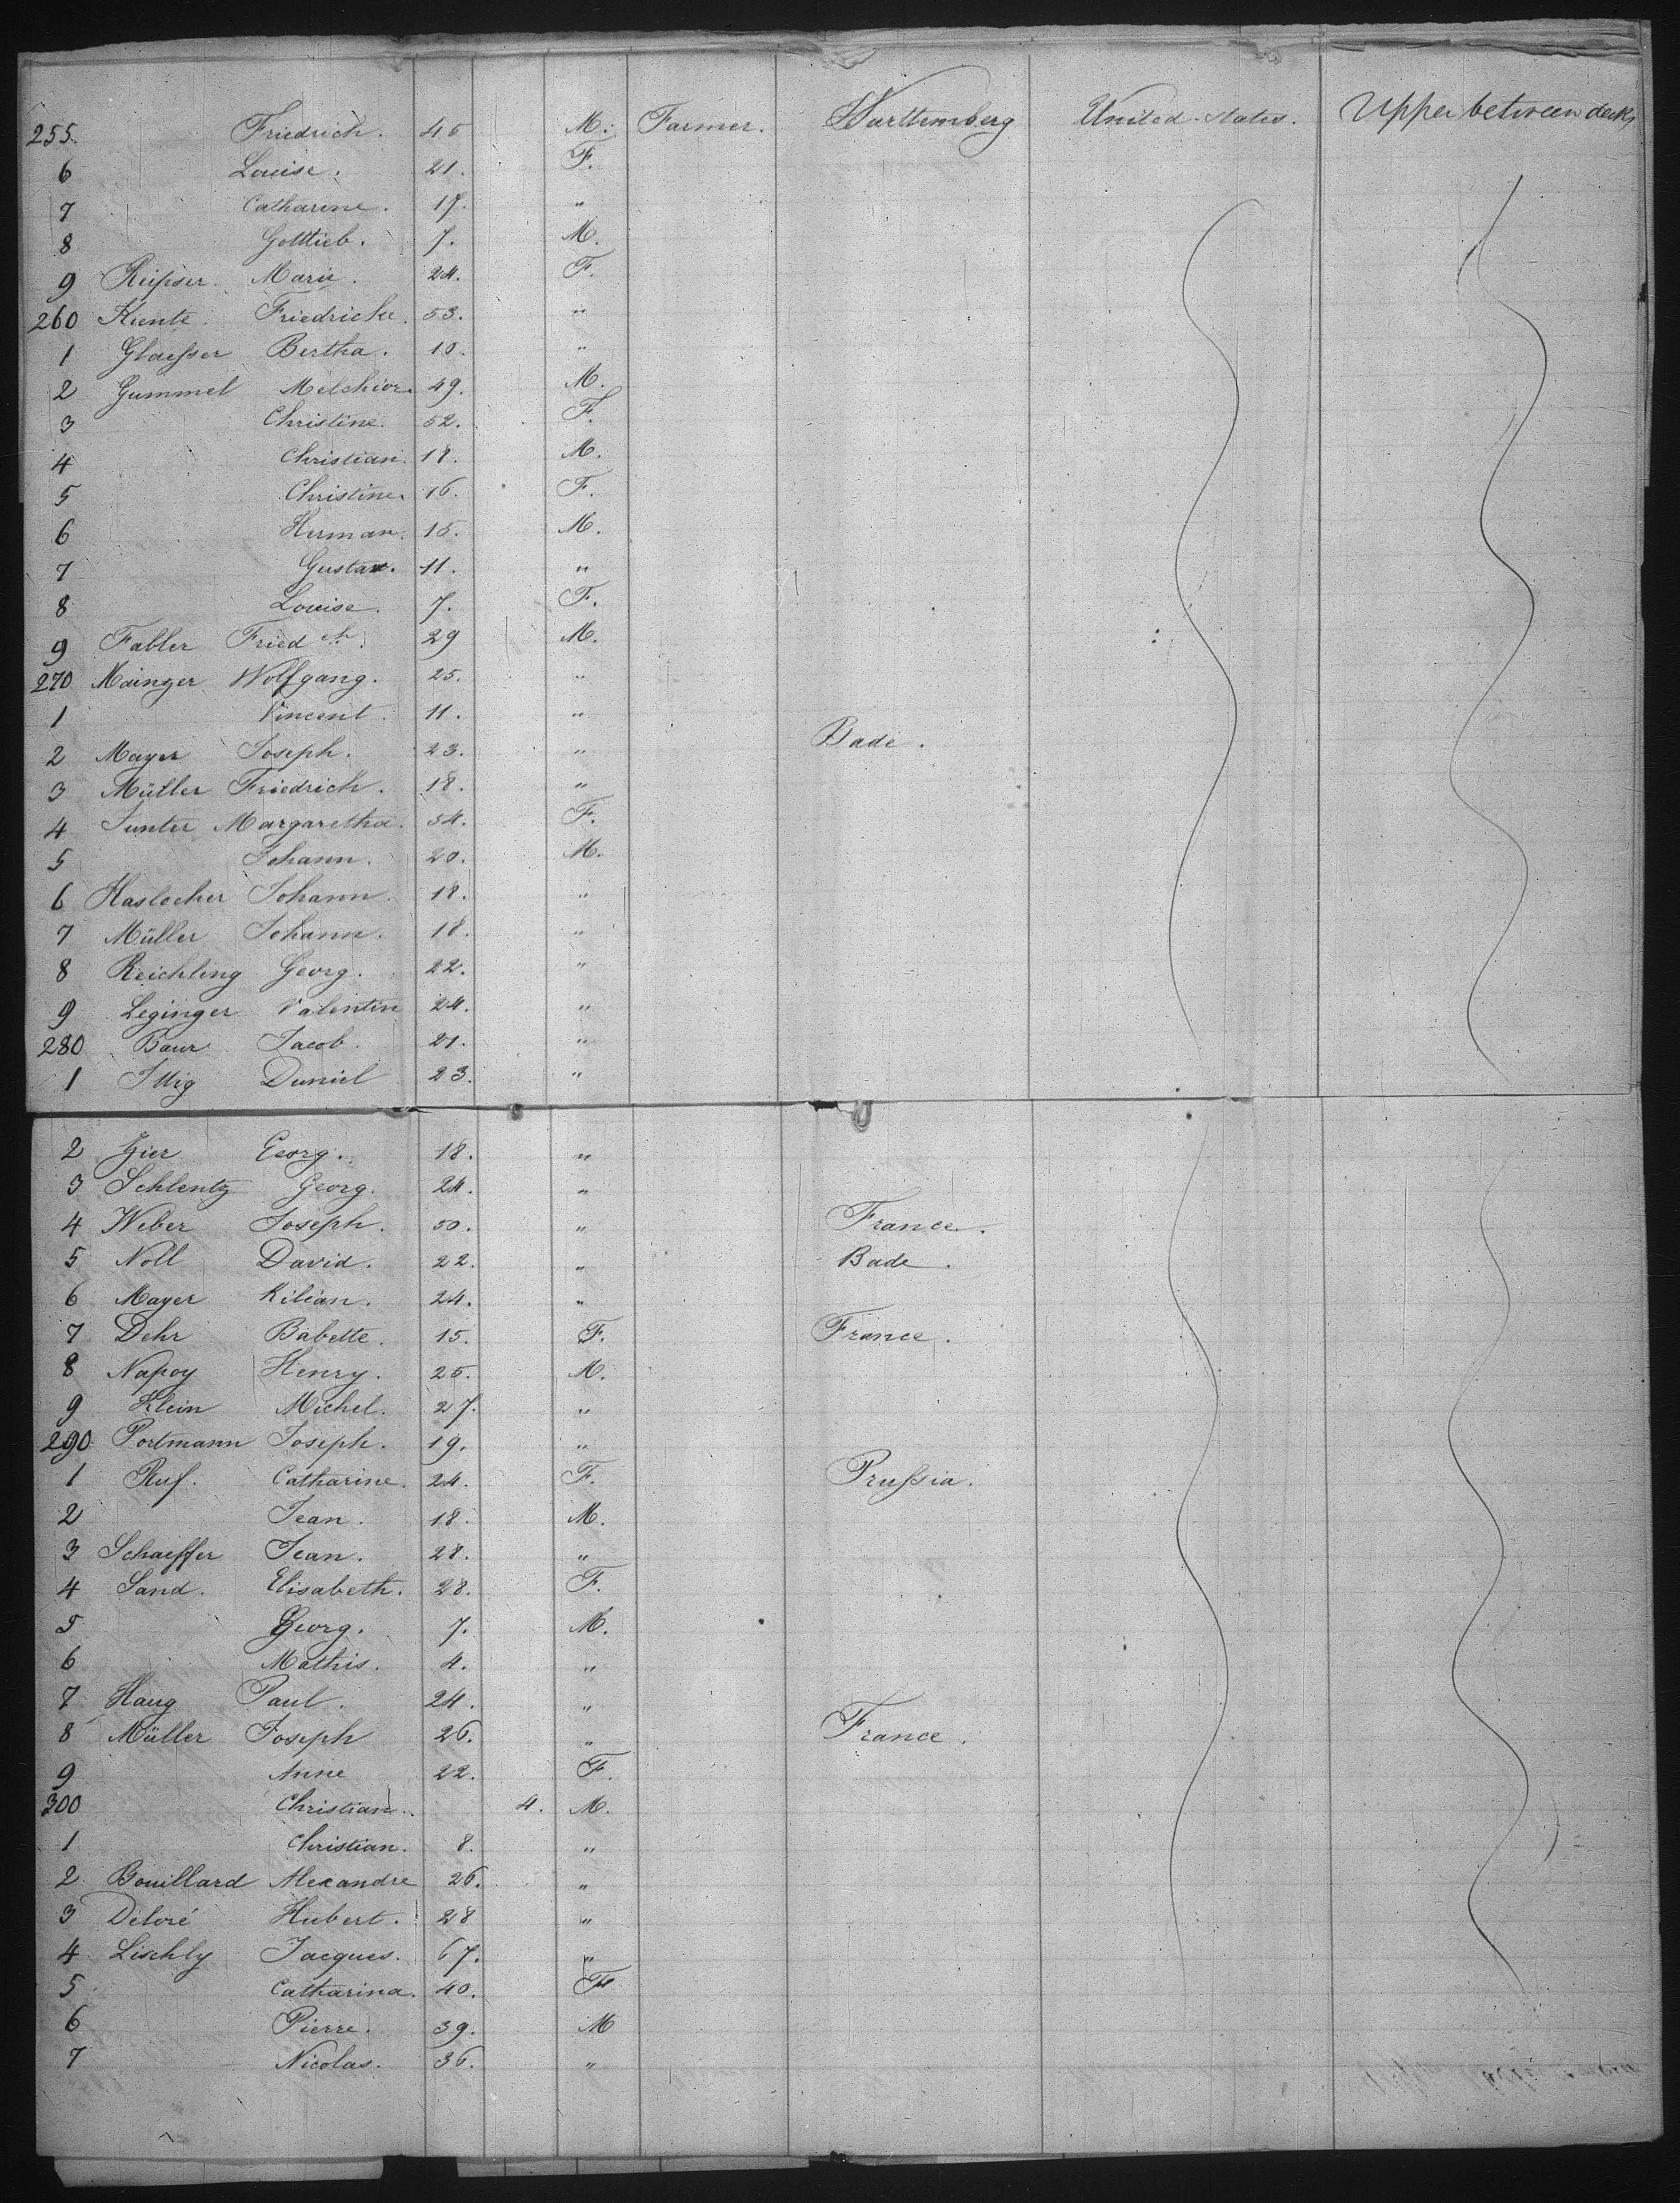 255. Friedrich. 45 M. Farmer. Wurttemberg United States. Upper between decks
6 Louise. 21. F.
7 Catharine. 17. "
8 Gottlieb. 7. M.
9 Marie. 24. F.
260 Kuentz Friedricke. 53. "
1 Glaesser Bertha. 10. "
2 Gummel Melchior. 49. M.
3 Christine. 52. F.
4 Christian. 18. M.
5 Christine. 16. F.
6 Herman. 15. M.
7 Gustav. 11. "
8 Louise. 7. F.
9 Fabler Friedch. 29 M.
270 Mainzer Wolfgang. 25. "
1 Vincent. 11. "
2 Mayer Joseph. 23. " Bade.
3 Müller Friedrich. 18. "
4 Sunter Margaretha. 54. F.
5 Johann. 20. M.
6 Haslocher Johann. 18. "
7 Müller Johann. 18. "
8 Reichling Georg. 22. "
9 Leginger Valentin 24. "
280 Baur Jacob. 21. "
1 Illig Daniel 23. "
2 Zier Georg. 18. "
3 Schlentz Georg. 24. "
4 Weber Joseph. 50. " France.
5 Noll David. 22. " Bade.
6 Mayer Kilian. 24. "
7 Dehr Babette. 15. F. France.
8 Napoy Henry. 25. M.
9 Klein Michel. 27. "
290 Portmann Joseph. 19. "
1 Ruf. Catharine. 24. F. Prussia.
2 Jean. 18. M.
3 Schaeffer Jean. 28. "
4 Sand. Elisabeth. 28. F.
5 Georg. 7. M.
6 Mathis. 4. "
7 Haug Paul. 24. "
8 Müller Joseph 26. " France.
9 Anne 22. F.
300 Christian. 4. M.
1 Christian. 8. "
2 Bouillard Alexandre 26. "
3 Deloré Hubert. 28 "
4 Lischly Jacques. 67. "
5 Catharina. 40. F
6 Pierre. 39. M
7 Nicolas. 36. "